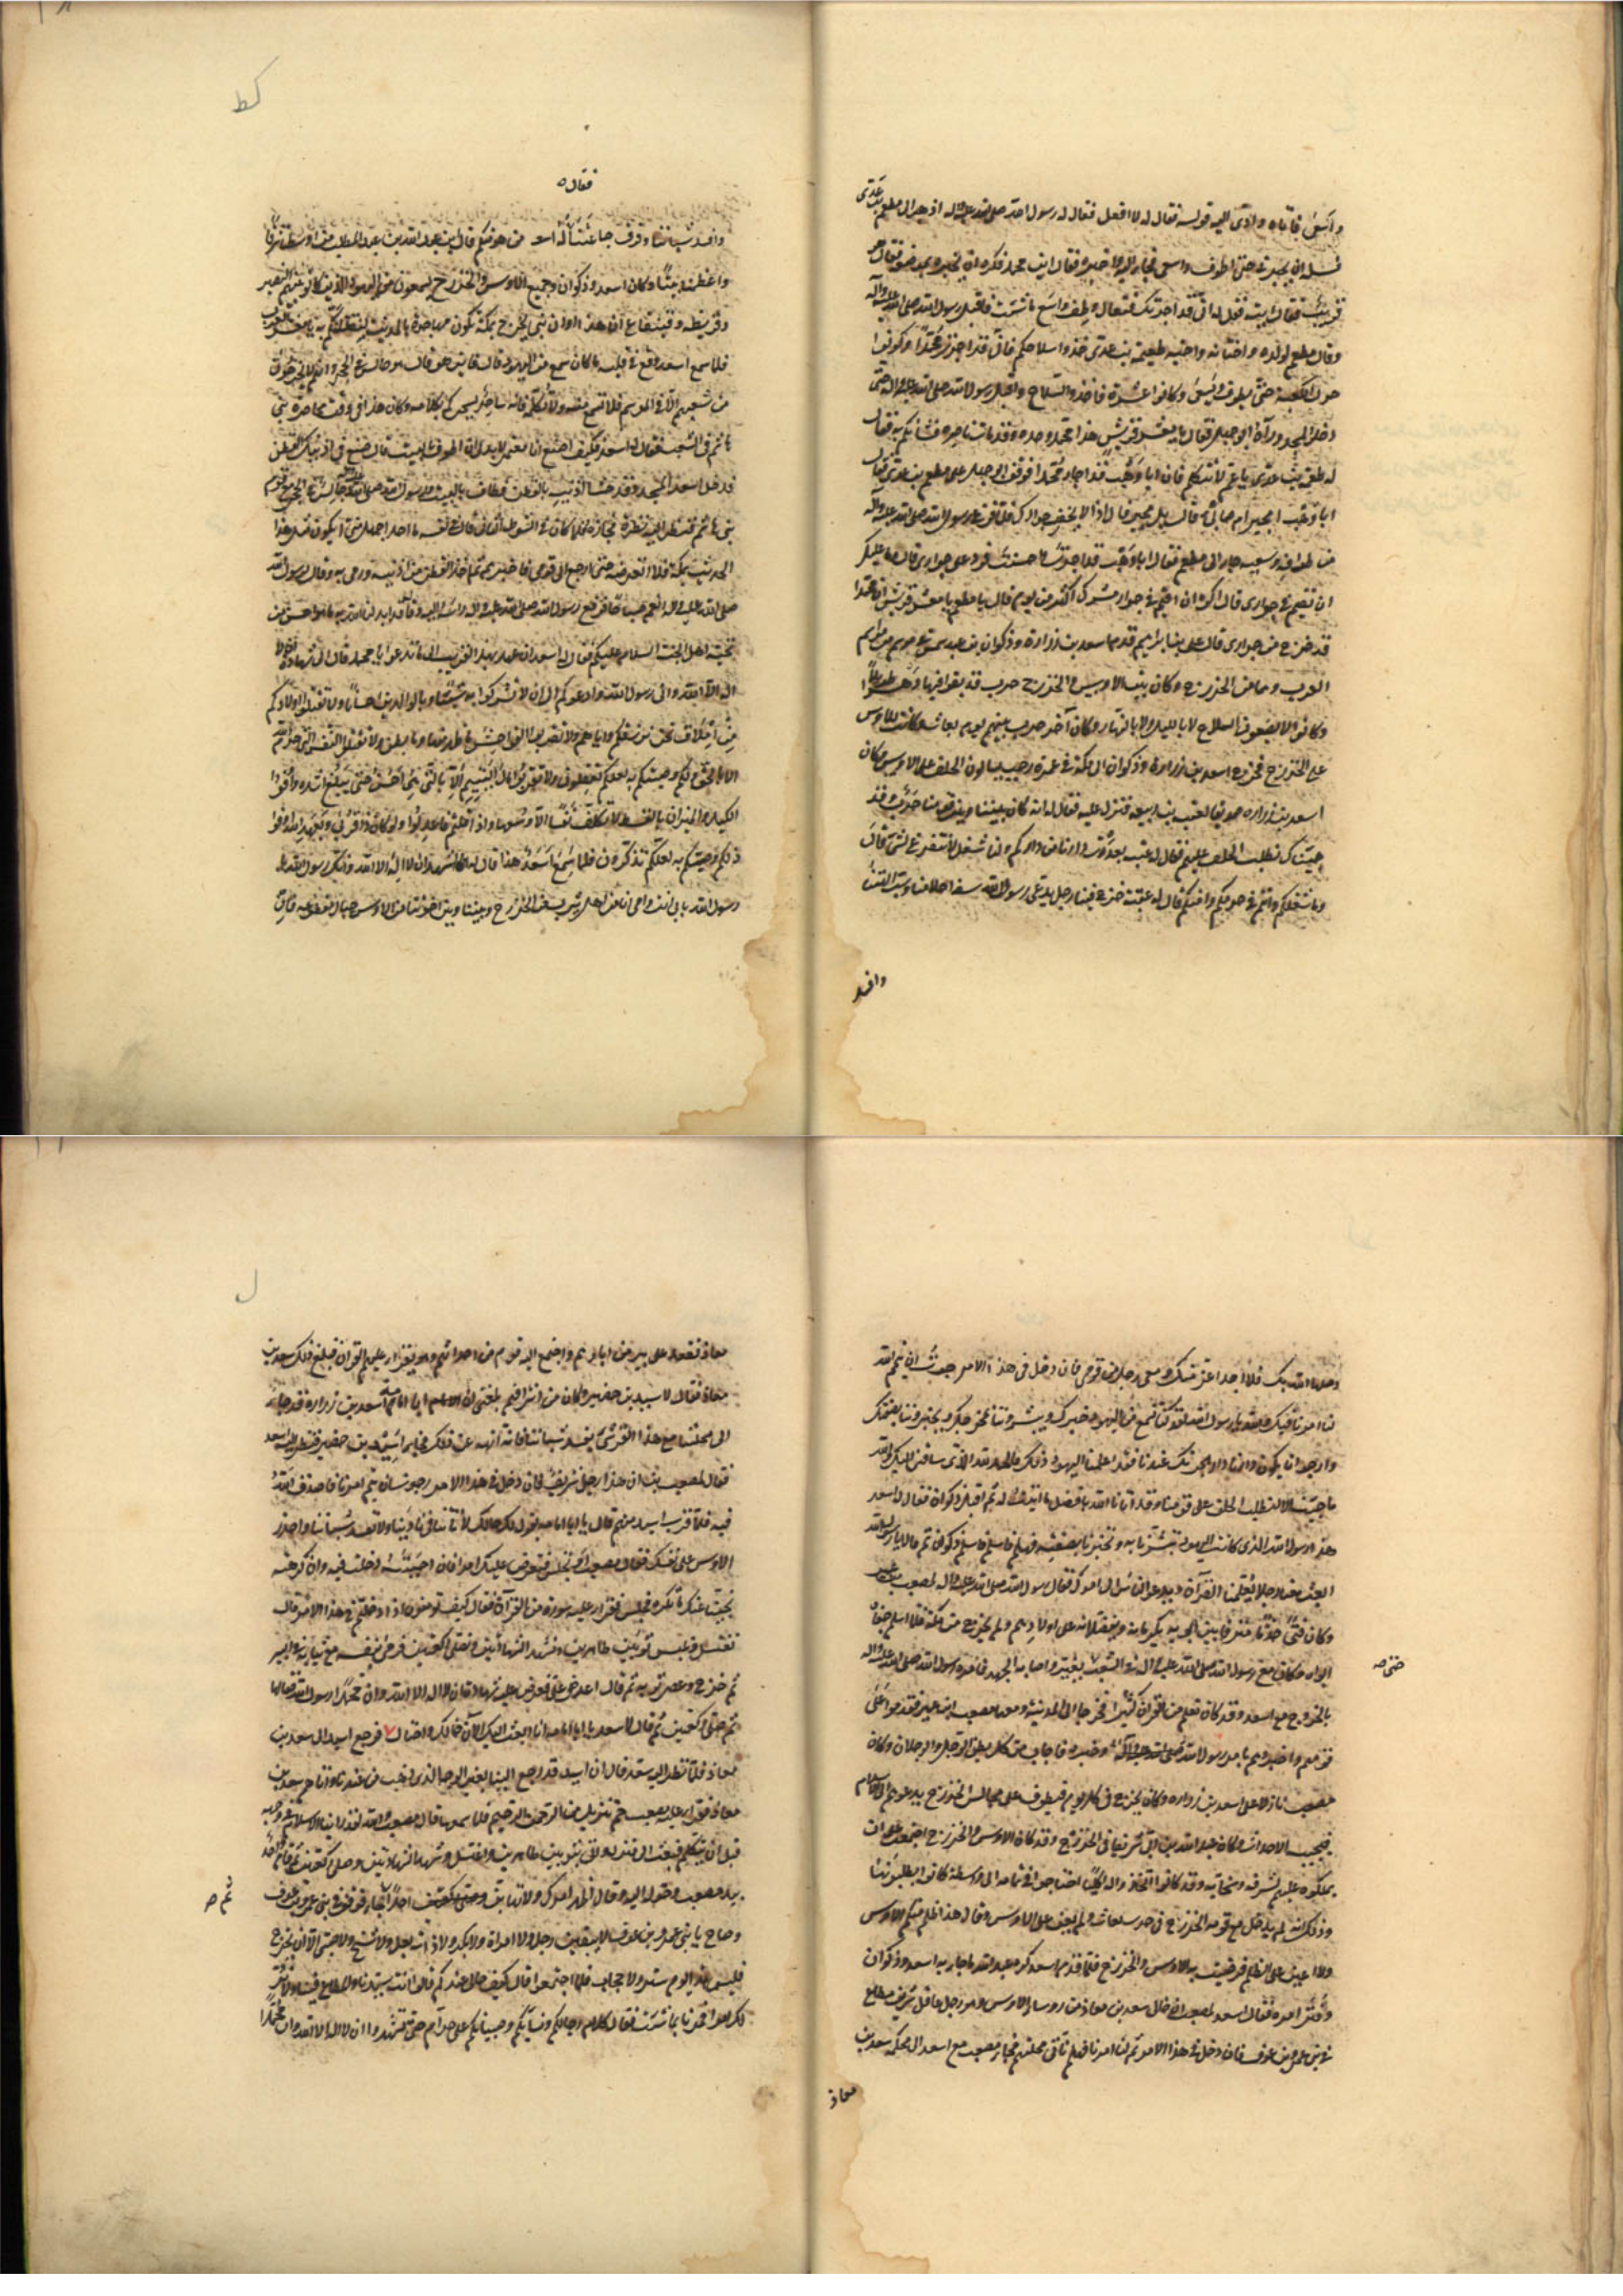 واسعى فاتاه وادّى اليه قوله فقال له لا افعل فقال له رسول الله صلى الله عليه واله اذهب الى مطعم بن عدى
فسله ان يجيرنى حتى اطوف واسعى فجاء اليه واخبره فقال اين محمد فكره ان يخبره بموضعه فقال هو
قريب فقال ايته فقل له انى قد اجرتك فتعال وطف واسع ما شئت فاقبل رسول الله صلى الله عليه وآله
وقال مطعم لولده واختانه واخيه طعيمة بن عدى خذوا سلاحكم فانى قد اجرت محمدًا وكونوا
حول الكعبة حتى يطوف ويسعى وكانوا عشرة فاخذوا السلاح واقبل رسول الله صلى الله عليه واله حتى
دخل المسجد ورآه ابو جهل فقال يا معشر قريش هذا محمد وحده وقد مات ناصره فشأنكم به فقال
له طعيمة بن عدى يا عم لا تتكلم فان ابا وهب قد اجار محمدا فوقف ابو جهل على مطعم بن عدى فقال
ابا وهب امجير ام صابئ قال بل مجير قال اذًا لا يخفر جوارك فلما فرغ رسول الله صلى الله عليه وآله
من طوافه وسعيه جاء الى مطعم فقال ابا وهب قد اجرت واحسنت فرد على جوارى قال وما عليك
ان تقيم فى جوارى قال اكره ان اقيم فى جوار مشرك اكثر من يوم قال مطعم يا معشر قريش ان محمدا
قد خرج من جوارى قال على بن ابراهيم قدم اسعد بن زرارة وذكوان بن عبد قيس فى موسم من مواسم
العرب وهما من الخزرج وكان بين الاوس والخزرج حرب قد بقوا فيها دهرًا طويلاً
وكانوا لا يضعون السلاح لا بالليل ولا بالنهار وكان آخر حرب بينهم يوم بعاث وكانت للاوس
على الخزرج فخرج اسعد بن زرارة وذكوان الى مكة فى عمرة رجب يسالون الحلف على الاوس وكان
اسعد بن زراره صديقا لعتبة بن ربيعة فنزل عليه فقال له انه كان بيننا وبين قومنا حرب وقد
جيناك نطلب الحلف عليهم فقال له عتبة بعدت دارنا من داركم ولنا شغل لا نتفرغ لشئ قال
وما شغلكم وانتم فى حرمكم وامنكم قال له عتبة خرج فينا رجل يدعى رسول الله سفه احلامنا وسب آلهتنا
وافسد
فقال ه
وافسد شباننا وفرق جماعتنا فقال له اسعد من هو منكم قال ابن عبد الله بن عبد المطلب من اوسطنا شرفًا
واعظمنا بيتًا وكان اسعد وذكوان وجميع الاوس والخزرج يسمعون من اليهود الذين كانوا بينهم النضير
وقريظه وقينقاع ان هذا اوان نبى يخرج بمكة يكون مهاجره بالمدينة لنقتلنكم به يا معشر العرب
فلما سمع اسعد وقع فى قلبه ما كان سمع من اليهود قال فاين هو قال جالس فى الحجر وانهم لا يخرجون
من شعبهم الا فى الموسم فلا تسمع منه ولا تكلمه فانه ساحر يسحرك بكلامه وكان هذا فى وقت محاصرة بنى
هاشم فى الشعب فقال له اسعد فكيف اصنع انا معتمر لا بد لى ان اطوف بالبيت قال ضع فى اذنيك القطن
فدخل اسعد المسجد وقد حشا اذنيه بالقطن فطاف بالبيت ورسول الله صلى الله عليه واله جالس فى الحجر مع قوم
بنى هاشم فنظر اليه نظرة فجازه فلما كان فى الشوط الثانى قال فى نفسه ما احد اجهل منى ايكون مثل هذا
الحديث بمكة فلا اتعرفه حتى ارجع الى قومى فاخبرهم ثم اخذ القطن من اذنيه ورمى به وقال لرسول الله
صلى الله عليه واله انعم صباحا فرفع رسول الله صلى الله عليه واله راسه اليه وقال قد ابدلنا الله به ما هو احسن من
تحية اهل الجنة السلام عليكم فقال له اسعد ان عهدك بهذا لقريب الى ما تدعو يا محمد قال الى شهادة ان لا
اله الا الله وانى رسول الله وادعوكم الى ان لا تشركوا به شيئًا وبالوالدين احسانا ولا تقتلوا اولادكم
من املاق نحن نرزقكم واياهم ولا تقربوا الفواحش ما ظهر منها وما بطن ولا تقتلوا النفس التى حرم الله
الا بالحق ذلكم وصيكم به لعلكم تعقلون ولا تقربوا مال اليتيم الا بالتى هى احسن حتى يبلغ اشده واوفوا
الكيل والميزان بالقسط لا نكلف نفسًا الا وسعها واذا قلتم فاعدلوا ولو كان ذا قربى وبعهد الله اوفوا
ذلكم وصيكم به لعلكم تذكرون فلما سمع اسعد هذا قال له اشهد ان لا اله الا الله وانك رسول الله يا
رسول الله بابى انت وامى انا من اهل يثرب من الخزرج وبيننا وبين اخوتنا من الاوس حبال مقطوعه فان
وصلها الله بك فلا احد اعز منك ومعى رجل من قومى فان دخل فى هذا الامر رجوت ان يتم الله
لنا امرنا فيك والله يا رسول الله لقد كنا نسمع من اليهود خبرك ويبشروننا بمخرجك ويخبروننا بصفتك
وارجو ان يكون دارنا دار هجرتك عندنا فقد اعلمنا اليهود ذلك فالحمد لله الذى ساقنى اليك والله
ما جئت الا لنطلب الحلف على قومنا وقد آتانا الله بافضل مما اتيت له ثم اقبل ذكوان فقال له اسعد
هذا رسول الله الذى كانت اليهود تبشرنا به وتخبرنا بصفته فهلم فاسلم فاسلم ذكوان ثم قالا يا رسول الله
ابعث معنا رجلا يعلمنا القرآن ويدعو الناس الى امرك فقال رسول الله صلى الله عليه واله لمصعب بن عمير
وكان فتى حدثا مترفا بين ابويه يكرمانه ويفضلانه على اولادهم ولم يخرج من مكة فلما اسلم جفاه
ابواه وكان مع رسول الله صلى الله عليه واله فى الشعب تغير واصابه الجهد فامره رسول الله صلى الله عليه واله
حتى صه
بالخروج مع اسعد وقد كان تعلم من القرآن كثيرًا فخرجا الى المدينة ومعهما مصعب بن عمير فقدموا على
قومهم واخبروهم بامر رسول الله صلى الله عليه وآله وخبره فاجاب من كل بطن الرجل والرجلان وكان
مصعب نازلا على اسعد بن زراره وكان يخرج فى كل يوم فيطوف على مجالس الخزرج يدعوهم الى الاسلام
فيجيبه الاحداث وكان عبد الله بن ابى شريفا فى الخزرج وقد كان الاوس والخزرج اجتمعت على ان
يملكوه عليهم لشرفه وسخائه وقد كانوا اتخذوا له اكليلًا احتاجوا فى تمامه الى واسطة كانوا يطلبونها
وذلك انه لم يدخل مع قومه الخزرج فى حرب بعاث ولم يعن على الاوس وقال هذا ظلم منكم للاوس
ولا اعين على الظلم فرضيت به الاوس والخزرج فلما قدم اسعد كره عبد الله ما جاء به اسعد وذكوان
وفتر امره فقال اسعد لمصعب ان خالى سعد بن معاذ من رؤساء الاوس وهو رجل عاقل شريف مطاع
فى بنى عمرو بن عوف فان دخل فى هذا الامر تم لنا امرنا فهلم نأتى محلتهم فجاء مصعب مع اسعد الى محلة سعد بن
معاذ
معاذ فقعد على بير من ابارهم واجتمع اليه قوم من احداثهم وهو يقرأ عليهم القرآن فبلغ ذلك سعد بن
معاذ فقال لاسيد بن حضير وكان من اشرافهم بلغنى ان ابا امامة اسعد بن زرارة قد جاء
الى محلتنا مع هذا القرشى يفسد شباننا فاته وانهه عن ذلك فجاء اسيد بن حضير فنظر اليه اسعد
فقال لمصعب ان هذا رجل شريف فان دخل فى هذا الامر رجوت ان يتم امرنا فاصدق الله
فيه فلما قرب اسيد منهم قال يا ابا امامة يقول لك خالك لا تأتنا فى نادينا ولا تفسد شباننا واحذر
الاوس على نفسك فقال مصعب او تجلس فنعرض عليك امرا فان احببته دخلت فيه وان كرهته
نحينا عنك ما تكره فجلس فقرا عليه سورة من القرآن فقال كيف تصنعون اذا دخلتم فى هذا الامر قال
نغتسل ونلبس ثوبين طاهرين ونشهد الشهادتين ونصلى ركعتين فرمى بنفسه مع ثيابه فى البير
ثم خرج وعصر ثوبه ثم قال اعرض على فعرض عليه شهادة ان لا اله الا الله وان محمدًا رسول الله فقالها
ثم صلى ركعتين ثم قال لاسعد يا ابا امامه انا ابعث اليك الآن خالك واحتال فرجع اسيد الى سعد بن
معاذ فلما نظر اليه سعد قال ان اسيد قد رجع الينا بغير الوجه الذى ذهب من عندنا واتاهم سعد بن
معاذ فقرأ عليه مصعب حم تنزيل من الرحمن الرحيم فلما سمعها قال مصعب والله لقد راينا الاسلام فى وجهه
قبل ان يتكلم فبعث الى منزله واتى بثوبين طاهرين واغتسل وشهد الشهادتين وصلى ركعتين ثم قام واخذ
ثم صه
بيد مصعب وحوله اليه وقال اظهر امرك ولا تهابن احدًا ثم جاء فوقف فى بنى عمرو بن عوف
وصاح يا بنى عمرو بن عوف لا يبقين رجل ولا امراة ولا بكر ولا ذات بعل ولا شيخ ولا صبى الا ان يخرج
فليس هذا يوم ستر ولا حجاب فلما اجتمعوا قال كيف حالى عندكم قالوا انت سيدنا والمطاع فينا ولا نرد
لك امرا فمرنا بما شئت فقال كلام رجالكم ونسائكم وصبيانكم على حرام حتى تشهدوا ان لا اله الا الله وان محمدًا